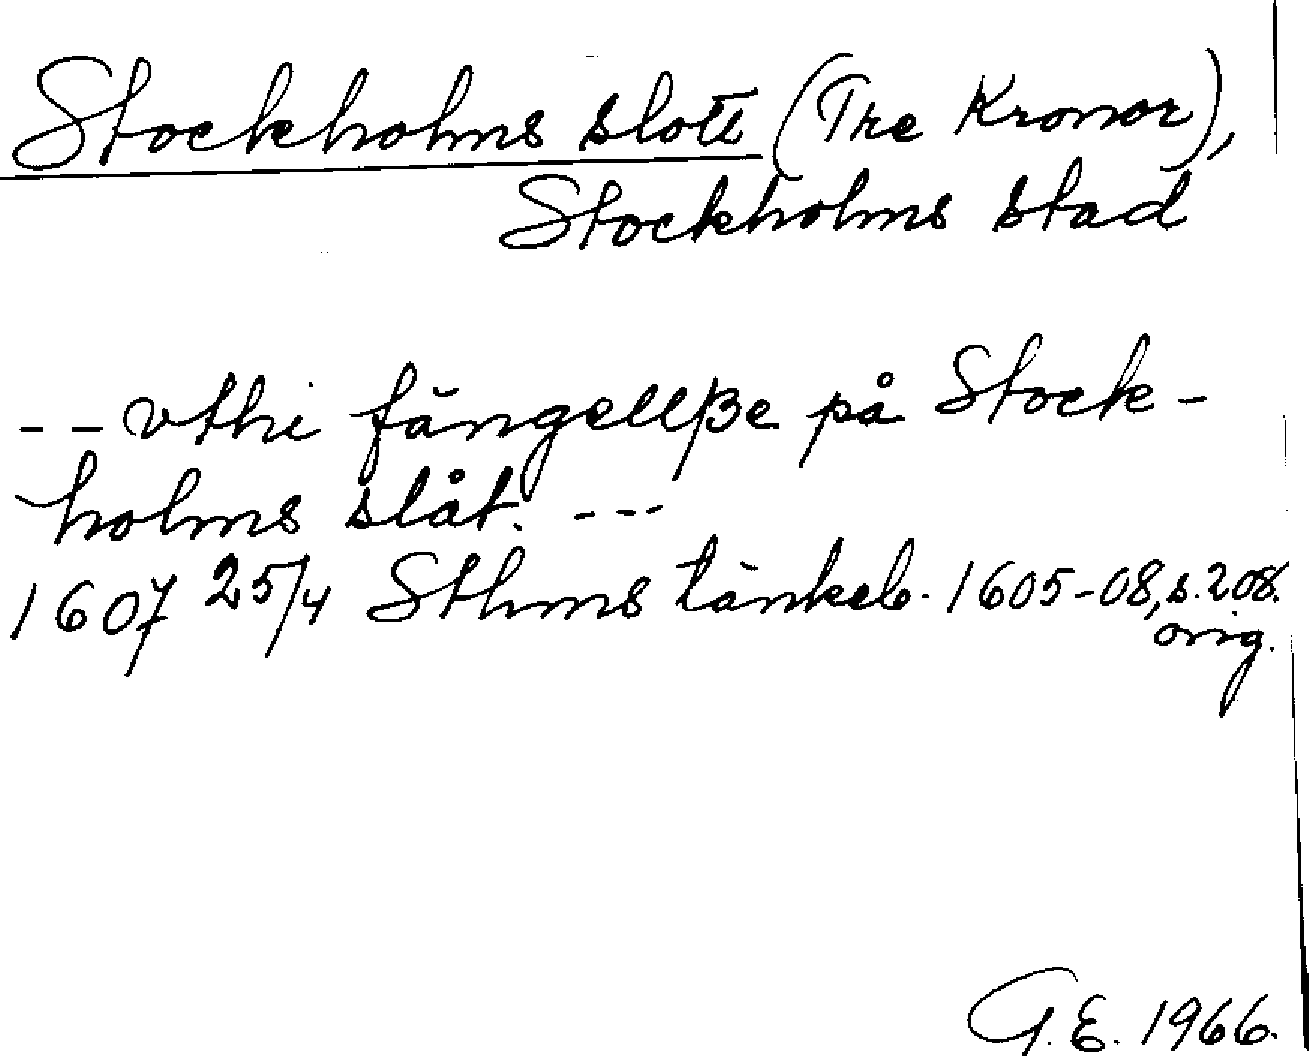 Stockholms slott (Tre Kronor),
Stockholms stad
-- vthi fängellße på Stock-
holms slåt. ---
1607 25/4 Sthms tänkeb. 1605-08, s. 208.
orig.
G.E. 1966.